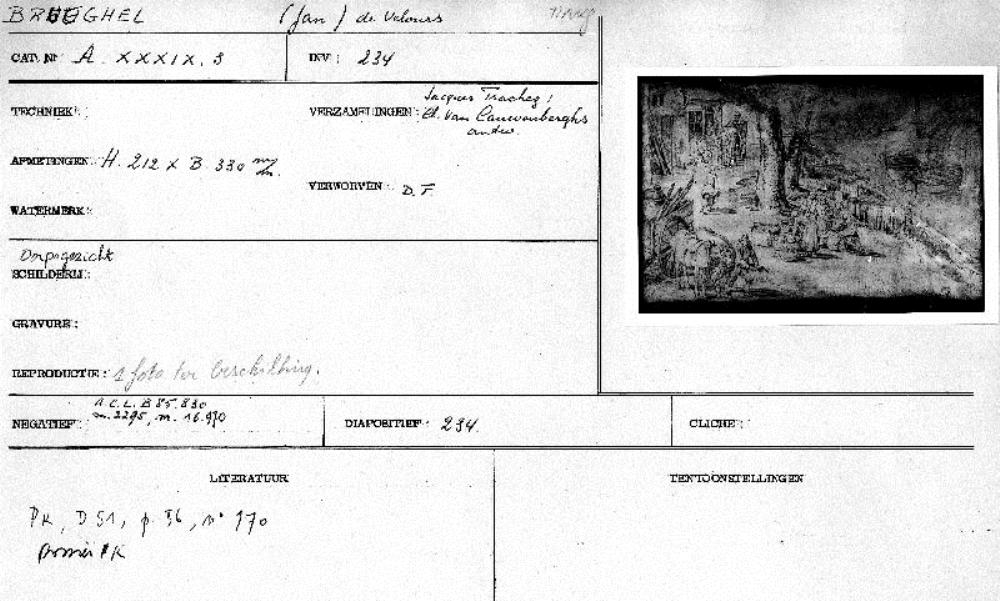 BRUEGHEL (Jan) de Velours
CAT. Nr A. XXXIX. 3 INV: 234
TECHNIEK: VERZAMELINGEN: Jacques Trachez;
Ed. Van Cauwenberghs
AFMETINGEN: H. 212 x B. 330 m/m.
VERWORVEN: D. F.
WATERMERK:
Dorpsgezicht
SCHILDERIJ:
GRAVURE:
REPRODUCTIE: 1 foto ter beschikking.
NEGATIEF: A.C.L. B 85.830
n. 2295, n. 16.970
DIAPOSITIEF: 234.
CLICHE:
LITERATUUR
TENTOONSTELLINGEN
PK, D 51, p. 36, n° 170
dossier PK